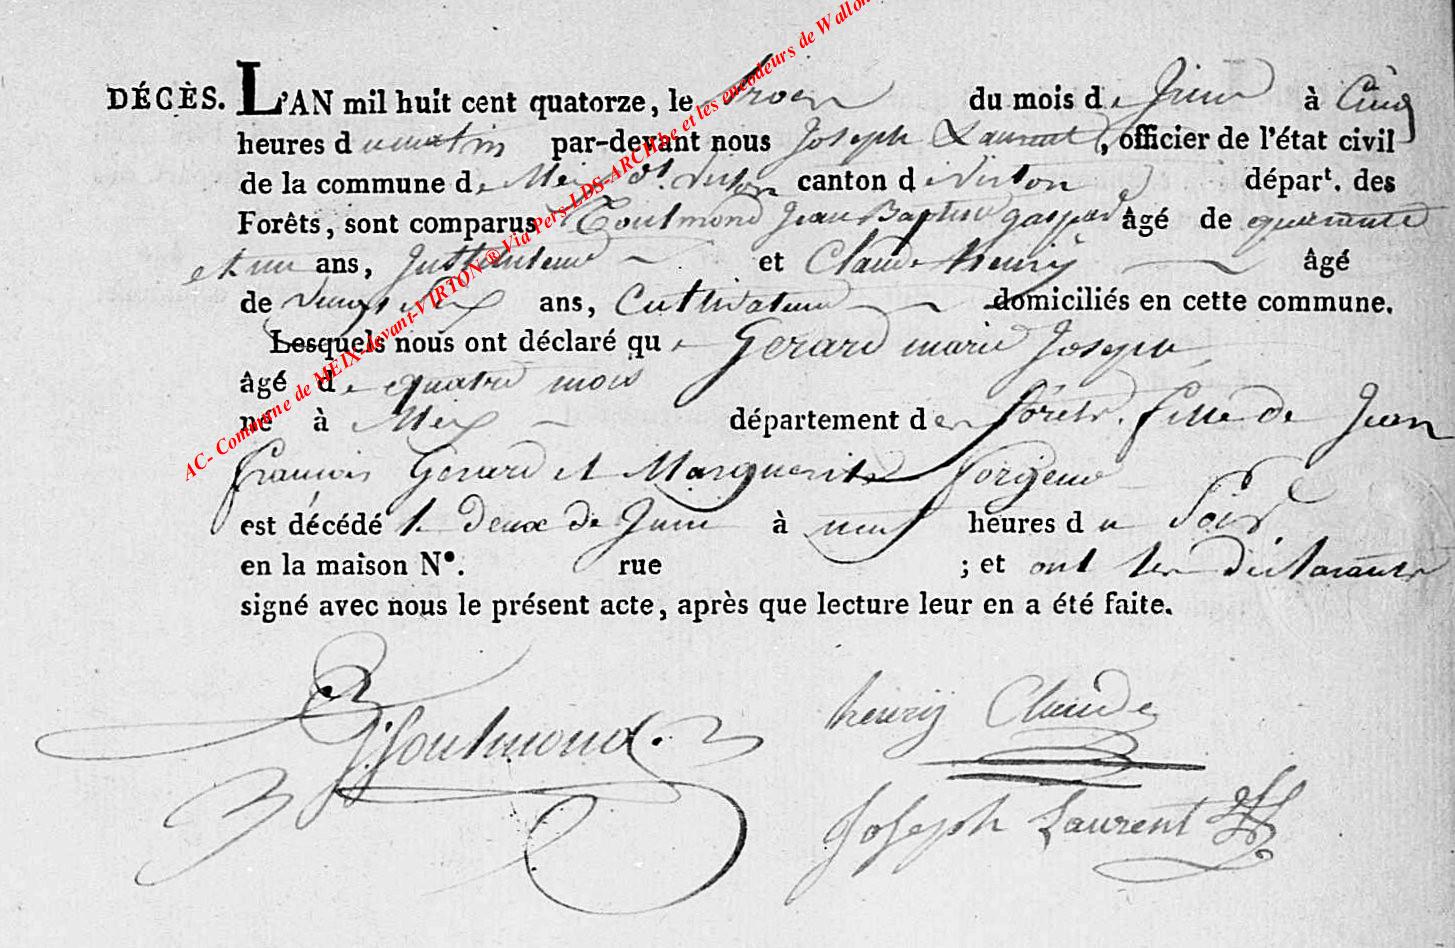 DÉCÈS. L'AN mil huit cent quatorze, le trois du mois de Juin à Cinq
heures du matin par-devant nous Joseph Laurent, officier de l'état civil
de la commune de Meix dt. Virton canton de Virton départ. des
Forêts, sont comparus Toulmond Jean Baptiste gaspard âgé de quarante
et un ans, Instituteur et Claude henry âgé
de ans, Cultivateur domiciliés en cette commune.
Lesquels nous ont déclaré que Gerard marie Joseph
âgé de quatre mois
né à Meix département des forêts. fille de Jean
francois Gerard et Marguerite
est décédé le deux de Juin à neuf heures du Soir
en la maison N°. rue ; et ont les déclarants
signé avec nous le présent acte, après que lecture leur en a été faite.
Toulmond. henry Claude
Joseph Laurent
AC- Commune de MEIX-devant-VIRTON ® Via Pers-LDS-ARCHbe et les encodeurs de Wallon